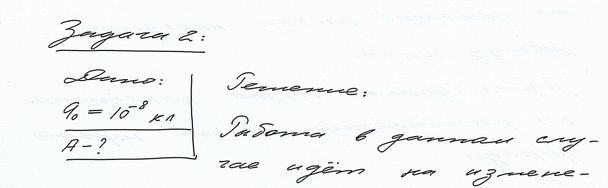 Задача 2:
Дано:
Решение:
q₀ = 10⁻⁸ кл
Работа в данном слу-
A - ?
чае идёт на измене-